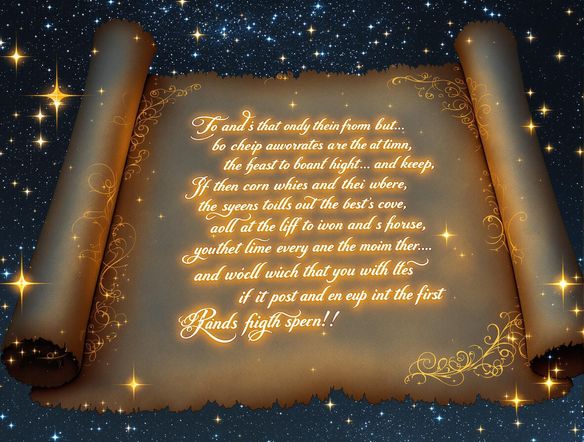 To and's that ondy thein fromm but...
bo cheip auvorrates are the at timn,
the heast to boant hight... and keep,
If then corn whies and thei wbere,
the syeens toills out the best's cove,
aoll at the liff to ivon and s foruse,
youthet lime every ane the moim ther....
and wócll wuch that you with ltes
if it post and en eup int the first
Rands fugth spern!!